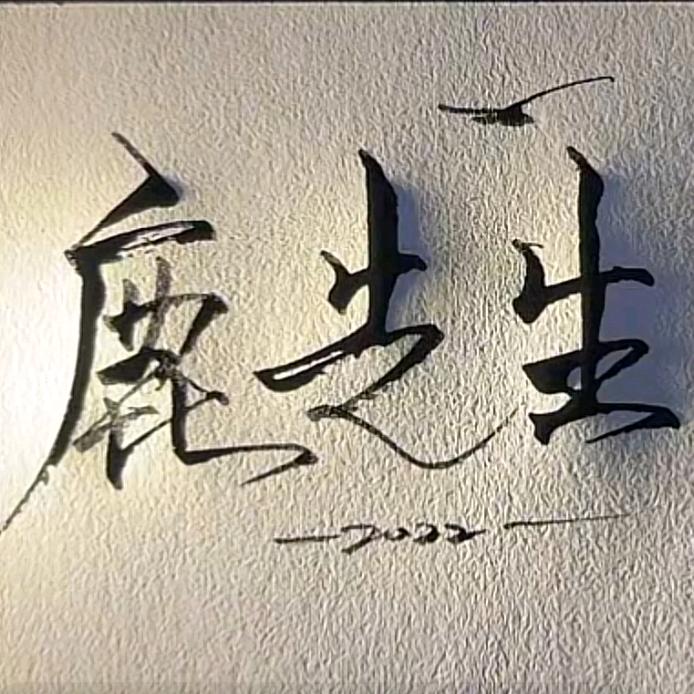 鹿先生
—2022—